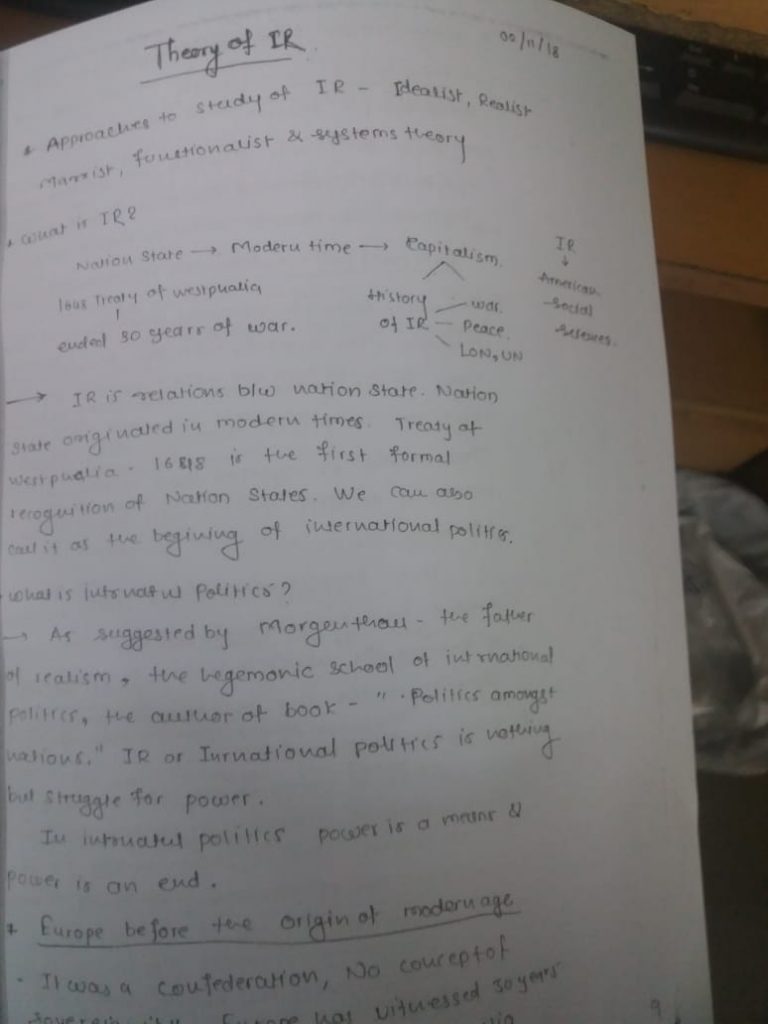 Theory of IR
00/11/18
* Approaches to study of IR - Idealist, Realist
Marxist, functionalist & systems theory
* What is IR?
Nation State → Modern time → Capitalism
Treaty of westphalia
ended 30 years of war.
History of IR
war.
Peace.
LON, UN
IR
↓
American
Social
→ IR is relations b/w nation State. Nation
State originated in modern times. Treaty of
westphalia - 1648 is the first formal
recognition of Nation States. We can also
call it as the begining of international politics.
What is Politics?
→ As suggested by Morgenthau - the father
of realism, the hegemonic school of
politics, the author of book - " Politics amongst
nations." IR or politics is nothing
but struggle for power.
In politics power is a means &
power is an end.
* Europe before the origin of modern age
- It was a confederation, No concept of
Europe has witnessed 30 years
9